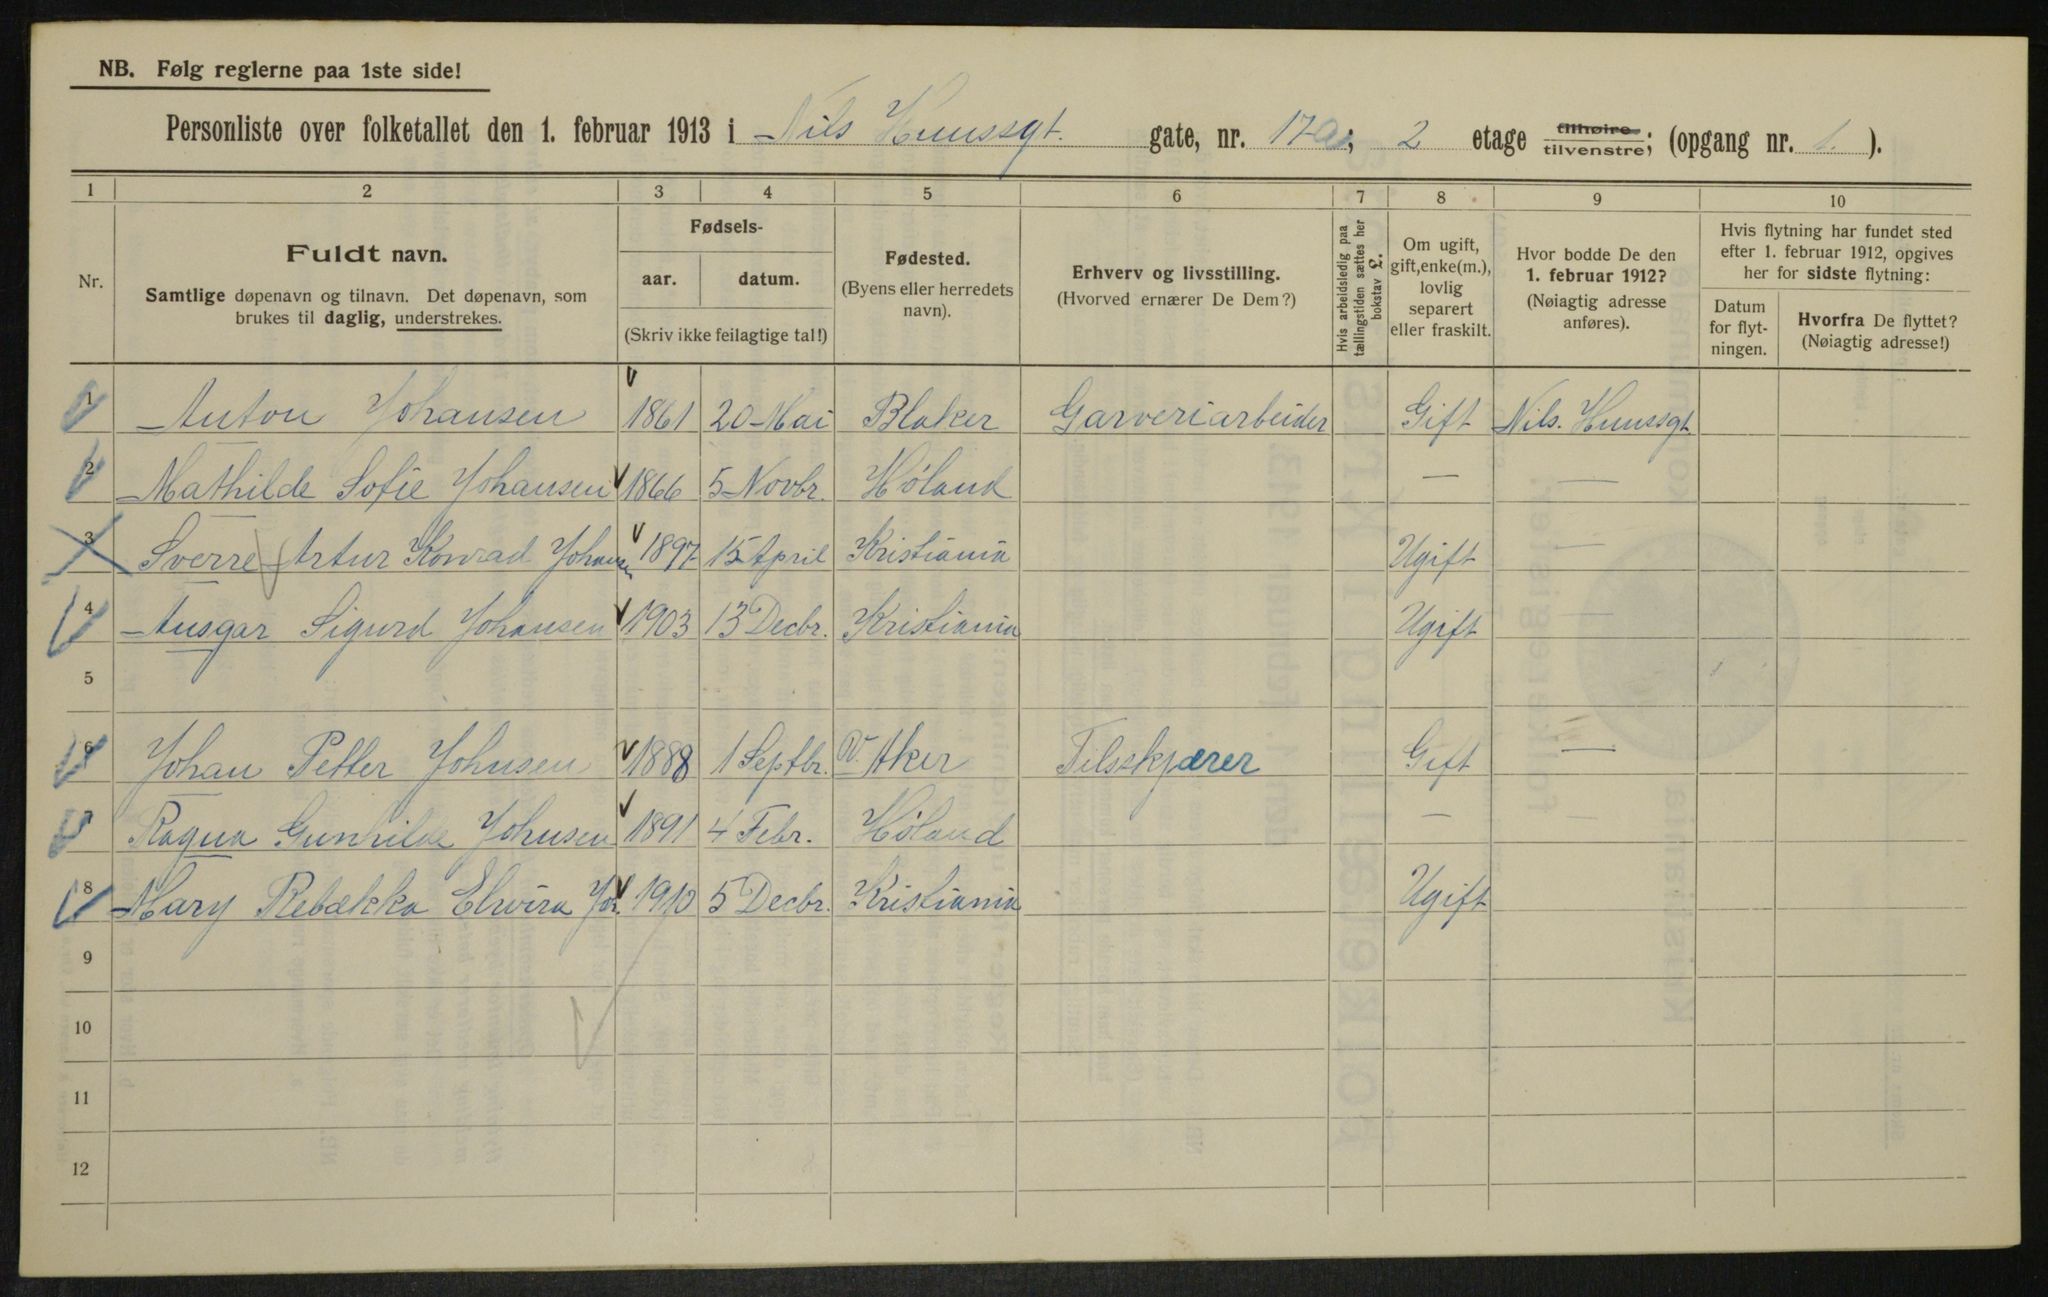 NB. Følg reglerne paa 1ste side!
Personliste over folketallet den 1. februar 1913 i Nils Huusgt. gate, nr. 17a; 2 etage tilhøire tilvenstre; (opgang nr. 1. ).
1 2 3 4 5 6 7 8 9 10
Nr.
Fuldt navn.
Samtlige døpenavn og tilnavn. Det døpenavn, som
brukes til daglig, understrekes.
Fødsels-
aar. datum.
(Skriv ikke feilagtige tal!)
Fødested.
(Byens eller herredets
navn).
Erhverv og livsstilling.
(Hvorved ernærer De Dem?)
Hvis arbeidsledig paa
tællingstiden sættes her
bokstav L.
Om ugift,
gift, enke(m.),
lovlig
separert
eller fraskilt.
Hvor bodde De den
1. februar 1912?
(Nøiagtig adresse
anføres).
Hvis flytning har fundet sted
efter 1. februar 1912, opgives
her for sidste flytning:
Datum
for flyt-
ningen.
Hvorfra De flyttet?
(Nøiagtig adresse!)
1 Anton Johansen 1861 20 Mai Blaker Garveriarbeider Gift Nils. Huusgt
2 Mathilde Sofie Johansen 1866 5 Novbr. Høland — —
3 Sverre Artur Konrad Johansen 1897 15 April Kristiania Ugift —
4 Ansgar Sigurd Johansen 1903 13 Decbr. Kristiania Ugift —
5
6 Johan Petter Johnsen 1888 1 Septbr. V. Aker Filsskjærer Gift —
7 Ragna Gunhilde Johnsen 1891 4 Febr. Høland — —
8 Mary Rebækka Elvira Joh. 1910 5 Decbr. Kristiania Ugift
9
10
11
12